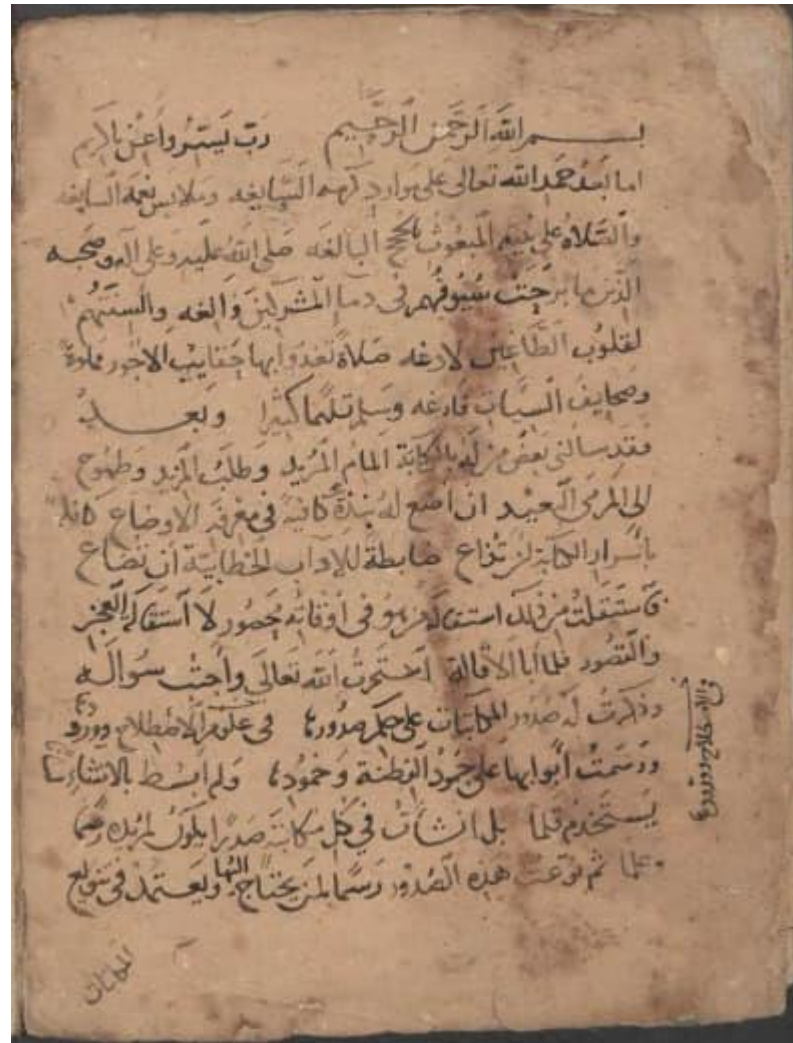 بسم الله الرحمن الرحيم رب يسر واعن يا كريم
اما بعد حمد الله تعالى على موارد كرمه السايغه وملابس نعمه السابغه
والصلاة على نبيه المبعوث بالحجج البالغه صلى الله عليه وعلى اله وصحبه
الذين ما برحت سيوفهم في دما المشركين والغه والسنتهم
لقلوب الطاغين لادغه صلاة تغدوا بها حقايب الاجور مملوة
وصحايف السيات فارغه وسلم تسليما كثيرا وبعد
فقد سالني بعض من له بالكتابة المام المريد وطلب المزيد وطموح
الى المرمى البعيد ان اضع له نبذة كافية في معرفة الاوضاع كافلة
باسرار الكتابة لن تذاع ضابطة للاداب الخطابية ان تضاع
فاستقلت من ذلك استقالة من هو في اوقاته محصور لا استقالة العجز
والقصور فلما ابا الاقالة استخرت الله تعالى واجبت سواله
وذكرت له صدور المكاتبات على حكم صدورها في علوم الاصطلاح وورودها
ورسمت ابوابها على جمود الفطنة وخمودها ولم ابسط بالانشاء لسانا
يستخدم قلما بل انشات في كل مكاتبة صدرا يكون لمريده رسما
وعلما ثم نوعت هذه الصدور رسما لمن يحتاج اليها ويعتمد في تنويع
المكاتبات